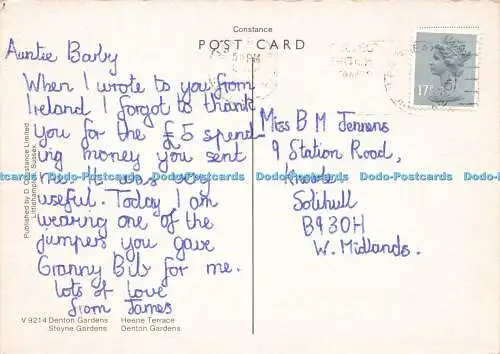 Constance
POST CARD
17P
Auntie Barby
When I wrote to you from
Ireland I forgot to thank
you for the £5 spend-
ing money you sent
me. It was very
useful. Today I am
wearing one of the
jumpers you gave
Granny Bib for me.
Lots of love
from James
Miss B M Jennens
9 Station Road,
Knowle
Solihull
B93OH
W. Midlands.
Published by D. Constance Limited,
Littlehampton, Sussex.
V 9214 Denton Gardens Heene Terrace
Steyne Gardens Denton Gardens
Dodo-Postcards Dodo-Postcards Dodo-Postcards Dodo-Postcards Dodo-Postcards